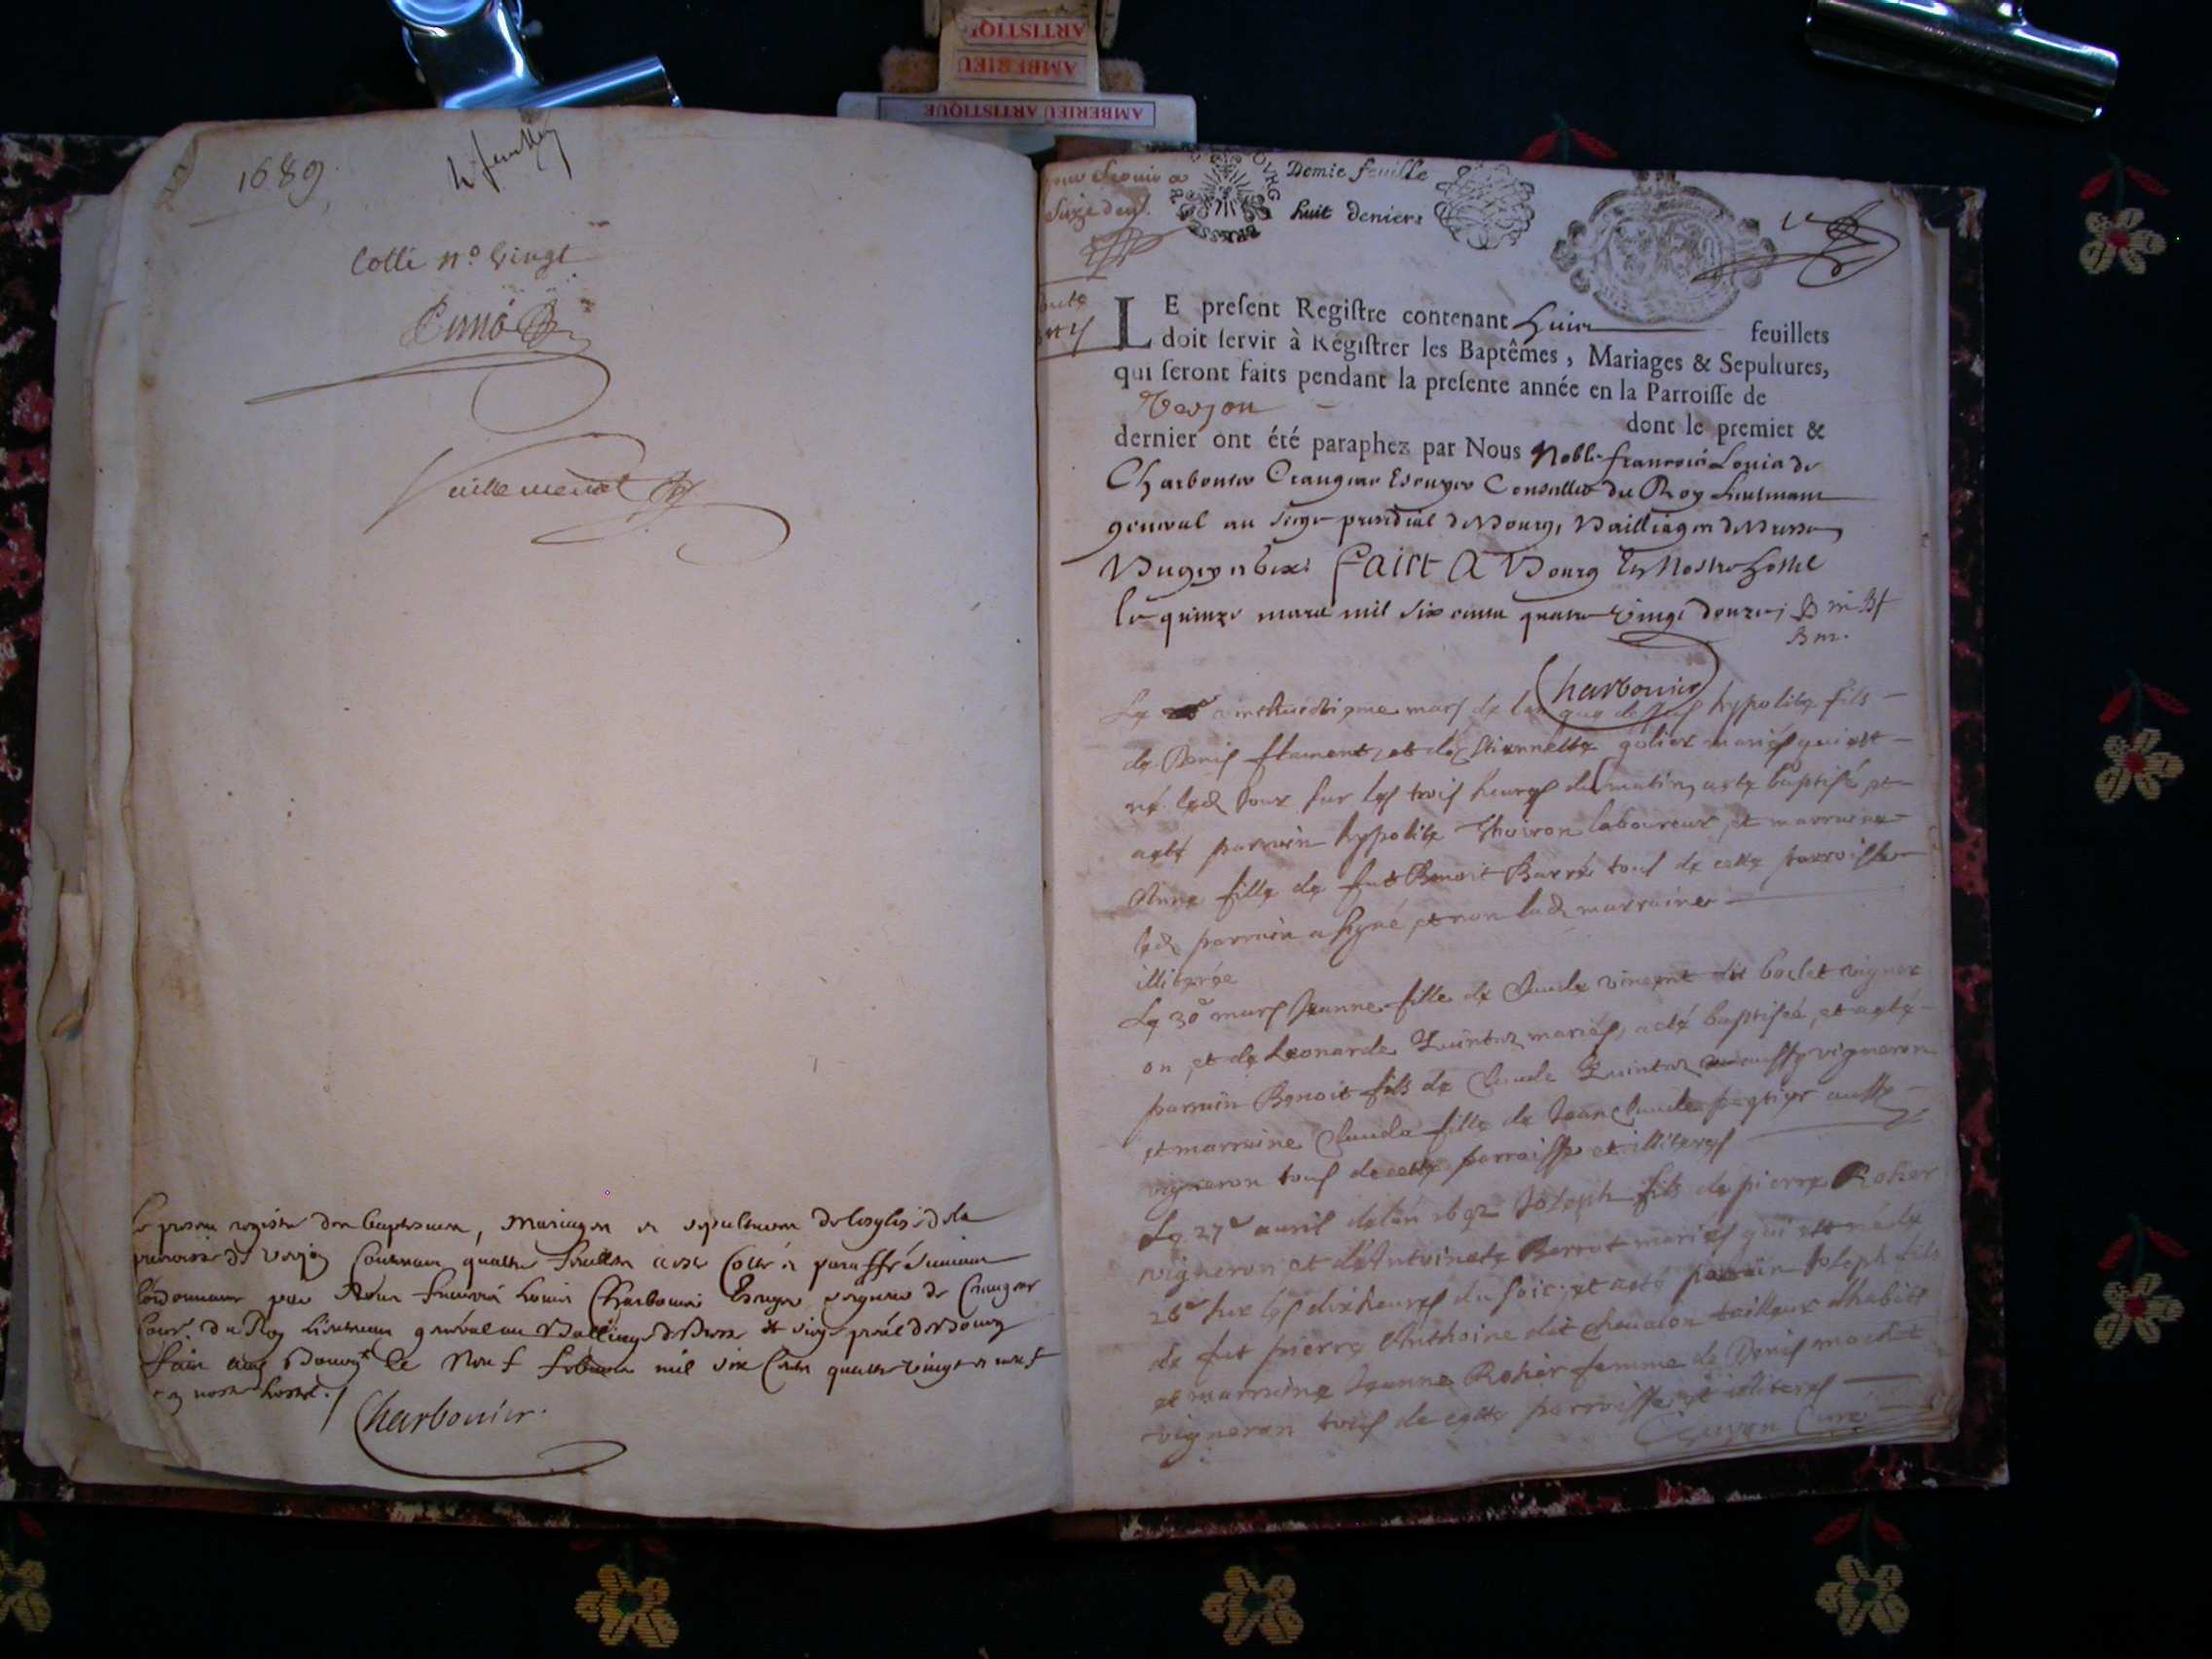 ARTISTIQ
AMBERIEU
AMBERIEU ARTISTIQUE
1689.
4 feuillets
Cotté n.º vingt
Vuillemenot
Le present registre des baptesmes, mariages et sepultures de l'esglise de la
parroisse de Verjon contenant quattre feuilles a esté cotté et paraffé suivant
l'ordonnance par Nous françois Louis Charbonnier Escuyer seigneur de Crangeac
Cons.r du Roy Lieutenant general au Balliage de Bresse et siege pnal de Bourg
Fait aud Bourg le Neuf febvrier mil six Cents quattre vingt et neuf
en nostre hostel.
Charbonier.
Demie feuille
huit deniers
BOURG
BRESSE
LE present Registre contenant huict feuillets
doit servir à Régistrer les Baptêmes, Mariages & Sepultures,
qui seront faits pendant la presente année en la Parroisse de
Verjon dont le premier &
dernier ont été paraphez par Nous Noble françois Louis de
Charbonier Crangeac Escuyer Conseiller du Roy Lieutenant
general au siege presidial de Bourg, Bailliages de Bresse
Bugey et Gex: Faict A Bourg En Nostre hostel
le quinze mars mil six cents quatre vingt douze,
Charbonier
Le vinthuictieme mars de l'an que dessus hypolite fils
de Denis flament, et de Estiennette golier mariés qui est
né led jour sur les trois heures du matin, a esté baptisé, et
a esté parrain hypolite Thoiron laboureur, et marraine
Anne fille de fut Benoit Barré tous de cette parroisse
led parrain a signé, et non lad marraine
illiterée
Le 30e mars Jeanne fille de Claude vincent dit bolet vigner
on, et de Leonarde Quintaz mariés, a esté baptiseé, et a esté
parrain Benoit fils de Claude Quintaz aussy vigneron
et marraine Claude fille de Jean Claude aussy
vigneron tous de cette parroisse et illiterés
Le 27e avril de l'an 1692 Joseph fils de pierre Rosier
vigneron, et d'Antoinete Berrot mariés qui est né le
26e sur les dix heures du soir, et a esté parrain Joseph fils
de fut pierre Anthoine dit chevalon tailleur d'habits
et marraine Jeanne Rosier femme de Denis
vigneron tous de cette parroisse et illiterés
Guyon Curé